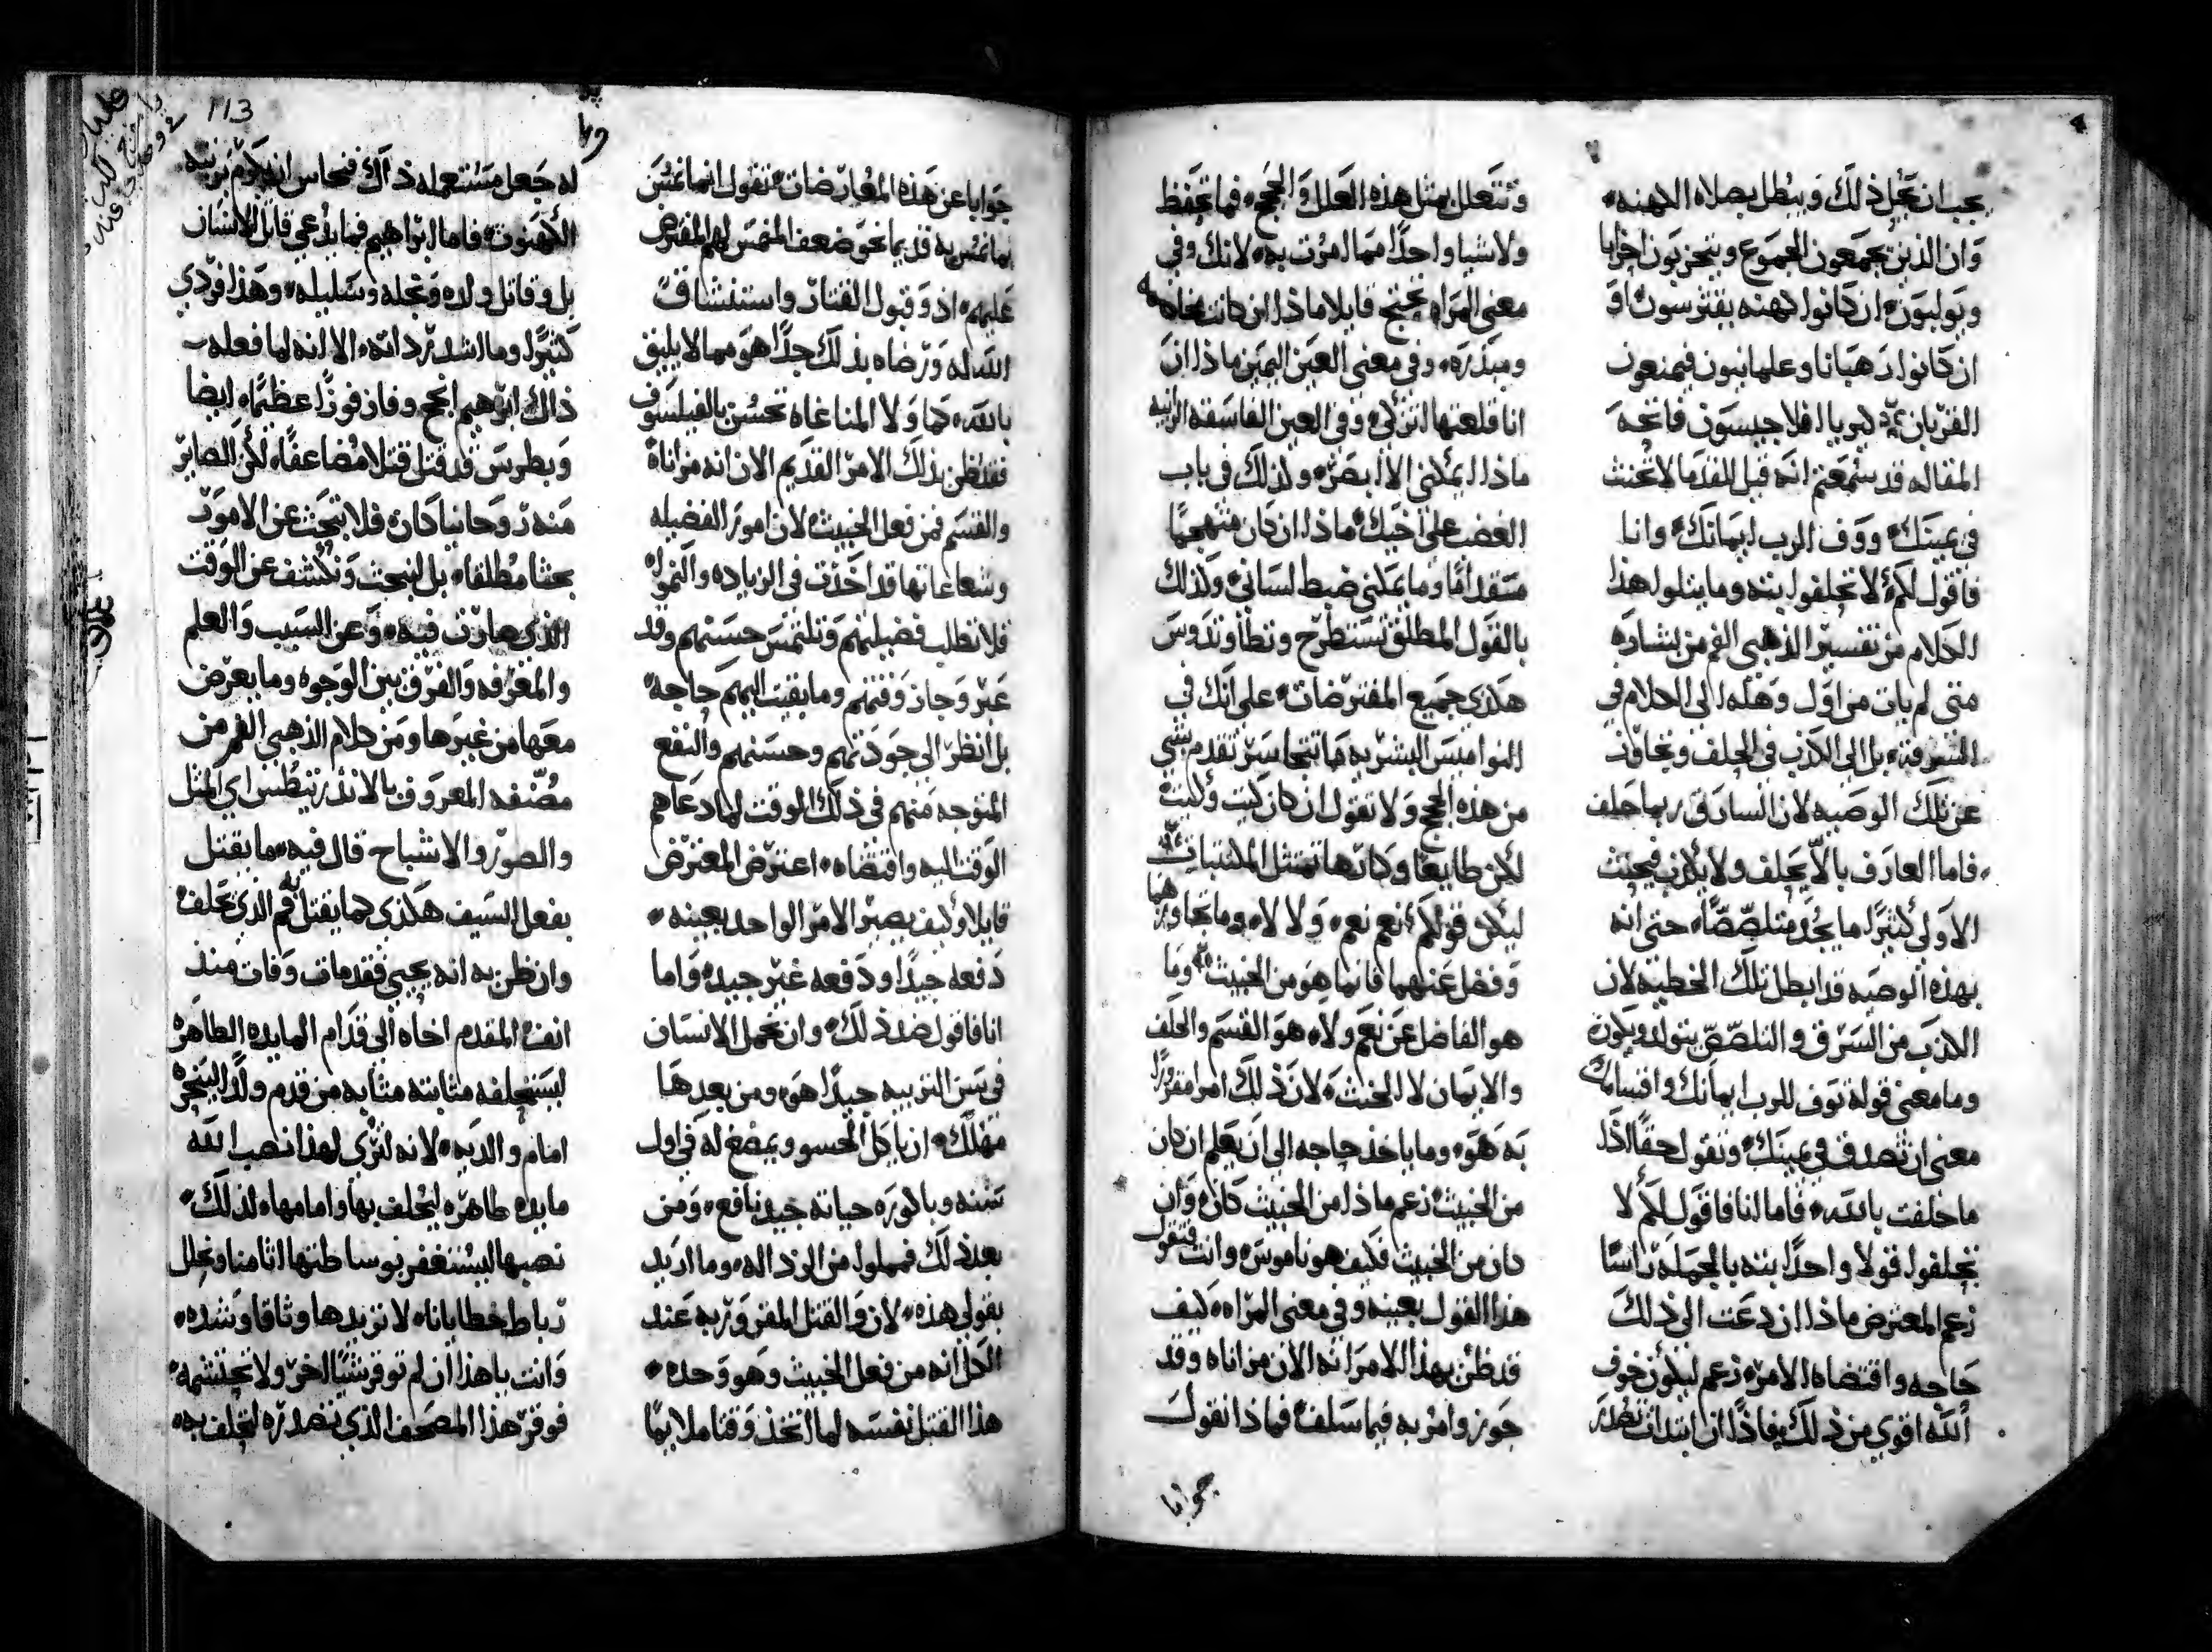 يجب ان يحل ذلك ويبطل بصلاه الكهنه
وان الذين يجمعون الجموع ويتحزبون احزابا
ان كانوا كهنه يفترسون او
ان كانوا رهبانا وعلمانيون فيمنعون
القربان كيرياليلاجيسون فاتحة
المقاله قد سمعتم انه قيل للقدما لا تحنث
في يمينك ووف الرب ايمانك وانا
فاقول لكم لا تحلفوا بته وما يتلوا هذا
الكلام من تفسير الذهبي الفم من بشاره
متى لم يات من اول وهله الى الكلام في
السرقه بل الى الكذب في الحلف وتجاوز
عن تلك الوصيه لان السارق ربما حلف
فاما العارف بالا يحلف ولا يكذب فيحنث
الاولى كثيرا ما يجد متلصصا حتى انه
بهذه الوصيه قد ابطل تلك الخطيه لان
الكذب من السرق والتلصص يتولد ويكون
وما معنى قوله توف للرب ايمانك واقسامك
معنى ان تصدق في يمينك وتقول حقا اذا
ما حلفت بالله فاما انا فاقول لكم لا
تحلفوا قولا واحدا بته بالجمله راسا
زعم المعترض ماذا ان دعت الى ذلك
حاجه واقتضاه الامر زعم ليكون خوف
الله اقوى من ذلك فاذا ان ابتدات تصدر
وتتعلل بمثل هذه العلل والحجج فما تحفظ
ولا شيا واحدا مما امرت به لانك وفي
معنى المراه تحتج قايلا ماذا ان كانت
ومبذره وفي معنى العين اليمين ماذا ان
انا قلعتها اترى وفي العين الفاسقه الزانيه
ماذا ايمكنني الا ابصر ولذلك في باب
الغضب على اخيك ماذا ان كان متهجما
متقدما وما يمكني ضبط لساني وكذلك
بالقول المطلق تستطرح وتطا وتدوس
هكذى جميع المفترضات على انك في
النواميس البشريه ما تتجاسر تقدم شي
من هذه الحجج ولا تقول ان كان كيت وكيت
لكن طايعا وكارها تمتثل المكتبات
ليكن قولكم نعم نعم ولا لا وما تجاوز
وفضل عنهما فانما هو من الخبيث وما
هو الفاضل عن نعم ولا هو القسم والحلف
والايمان لا الحنث لان ذلك امرا مقرورا
به هو وما ياخذ حاجه الى ان يعلم ان كان
من الخبيث زعم ماذا من الخبيث كان وان
كان من الخبيث فكيف هو ناموس وانت فتقول
هذا القول بعينه وفي معنى المراه كيف
قد ظن بهذا الامر انه الان من اناه وقد
جوز وامر به فيما سلف فماذا نقول
جوابا
113
جوابا عن هذه المعارضات تقول
عليهم اذ وقبول القتار واستنشاق
الله له ورضاه بذلك جدا هو مما لا يليق
بالله كما ولا المناغاه تحسن بالفيلسوف
فقد ظن بذلك الامر القديم الان انه من اناه
والقسم فمن فعل الخبيث لان امور الفضيله
وشعاعاتها قد اخذت في الزياده والنمو
فلا تطلب فضيلتهم وتلتمس حسنهم وقد
عبر وجاز وقتهم وما بقيت اليهم حاجه
بل انظر الى جودتهم وحسنهم والنفع
المتوجه منهم في ذلك الوقت لما دعاهم
الوقت اليه واقتضاه اعترض المعترض
قايلا وكيف يصير الامر الواحد بعينه
دفعه جيدا ودفعه غير جيده واما
انا فاقول ضد ذلك وان تحمل الانسان
في سن التربيه جيدا هو ومن بعدها
مهلك ان ياكل الحسو ويمضغ له في اول
سنه وباكوره حياته جيد نافع ومن
بعد ذلك فمملوا من الرذاله وما اريد
بقولي هذه لان والقتل المقرور به عند
الكل انه من فعل الخبيث وهو وحده
هذا القتل نفسه لما اتخذ وقتا ملايما
له جعل مستعمله ذاك فنحاس ان يكرم برتبه
الكهنوت فاما ابراهيم فما يدعى قاتل الانسان
بل وقاتل ولده ونجله وسليله وهذا فردي
كثيرا وما اشد رداته الا انه لما فعله
ذاك ابرهيم انجح وفاز فوزا عظيما ايضا
وبطرس قد قتل قتلا مضاعفا لكن الصاير
منه روحانيا كان فلا تبحث عن الامور
بحثا مطلقا بل لنبحث ونكشف عن الوقت
الذي صارت فيه وعن السبب والعلم
والمعرفه والفرق بين الوجوه وما يعرض
معها من غيرها ومن كلام الذهبي الفم من
مصنفه المعروف بالاندريتطس اي المثل
والصور والاشباح قال فيه ما يقتل
بفعل السيف هكذى كما يقتل فم الذي يحلف
وان ظن به انه يحيي فقد مات وفات منذ
انف المقدم اخاه الى قدام المايده الطاهره
ليستحلفه مثابته مثابه من قدم ولدا لينحره
امام والديه لانه اترى لهذا نصب الله
مايده طاهره ليحلف بها وامامها لذلك
نصبها ليستغفر بوساطتها اثامنا وتحلل
رباط خطايانا لا تزيدها وثاقا وشده
وانت يا هذا ان لم توقر شيا اخر ولا تحتشمه
فوقر هذا المصحف الذي تصدره لتحلف به